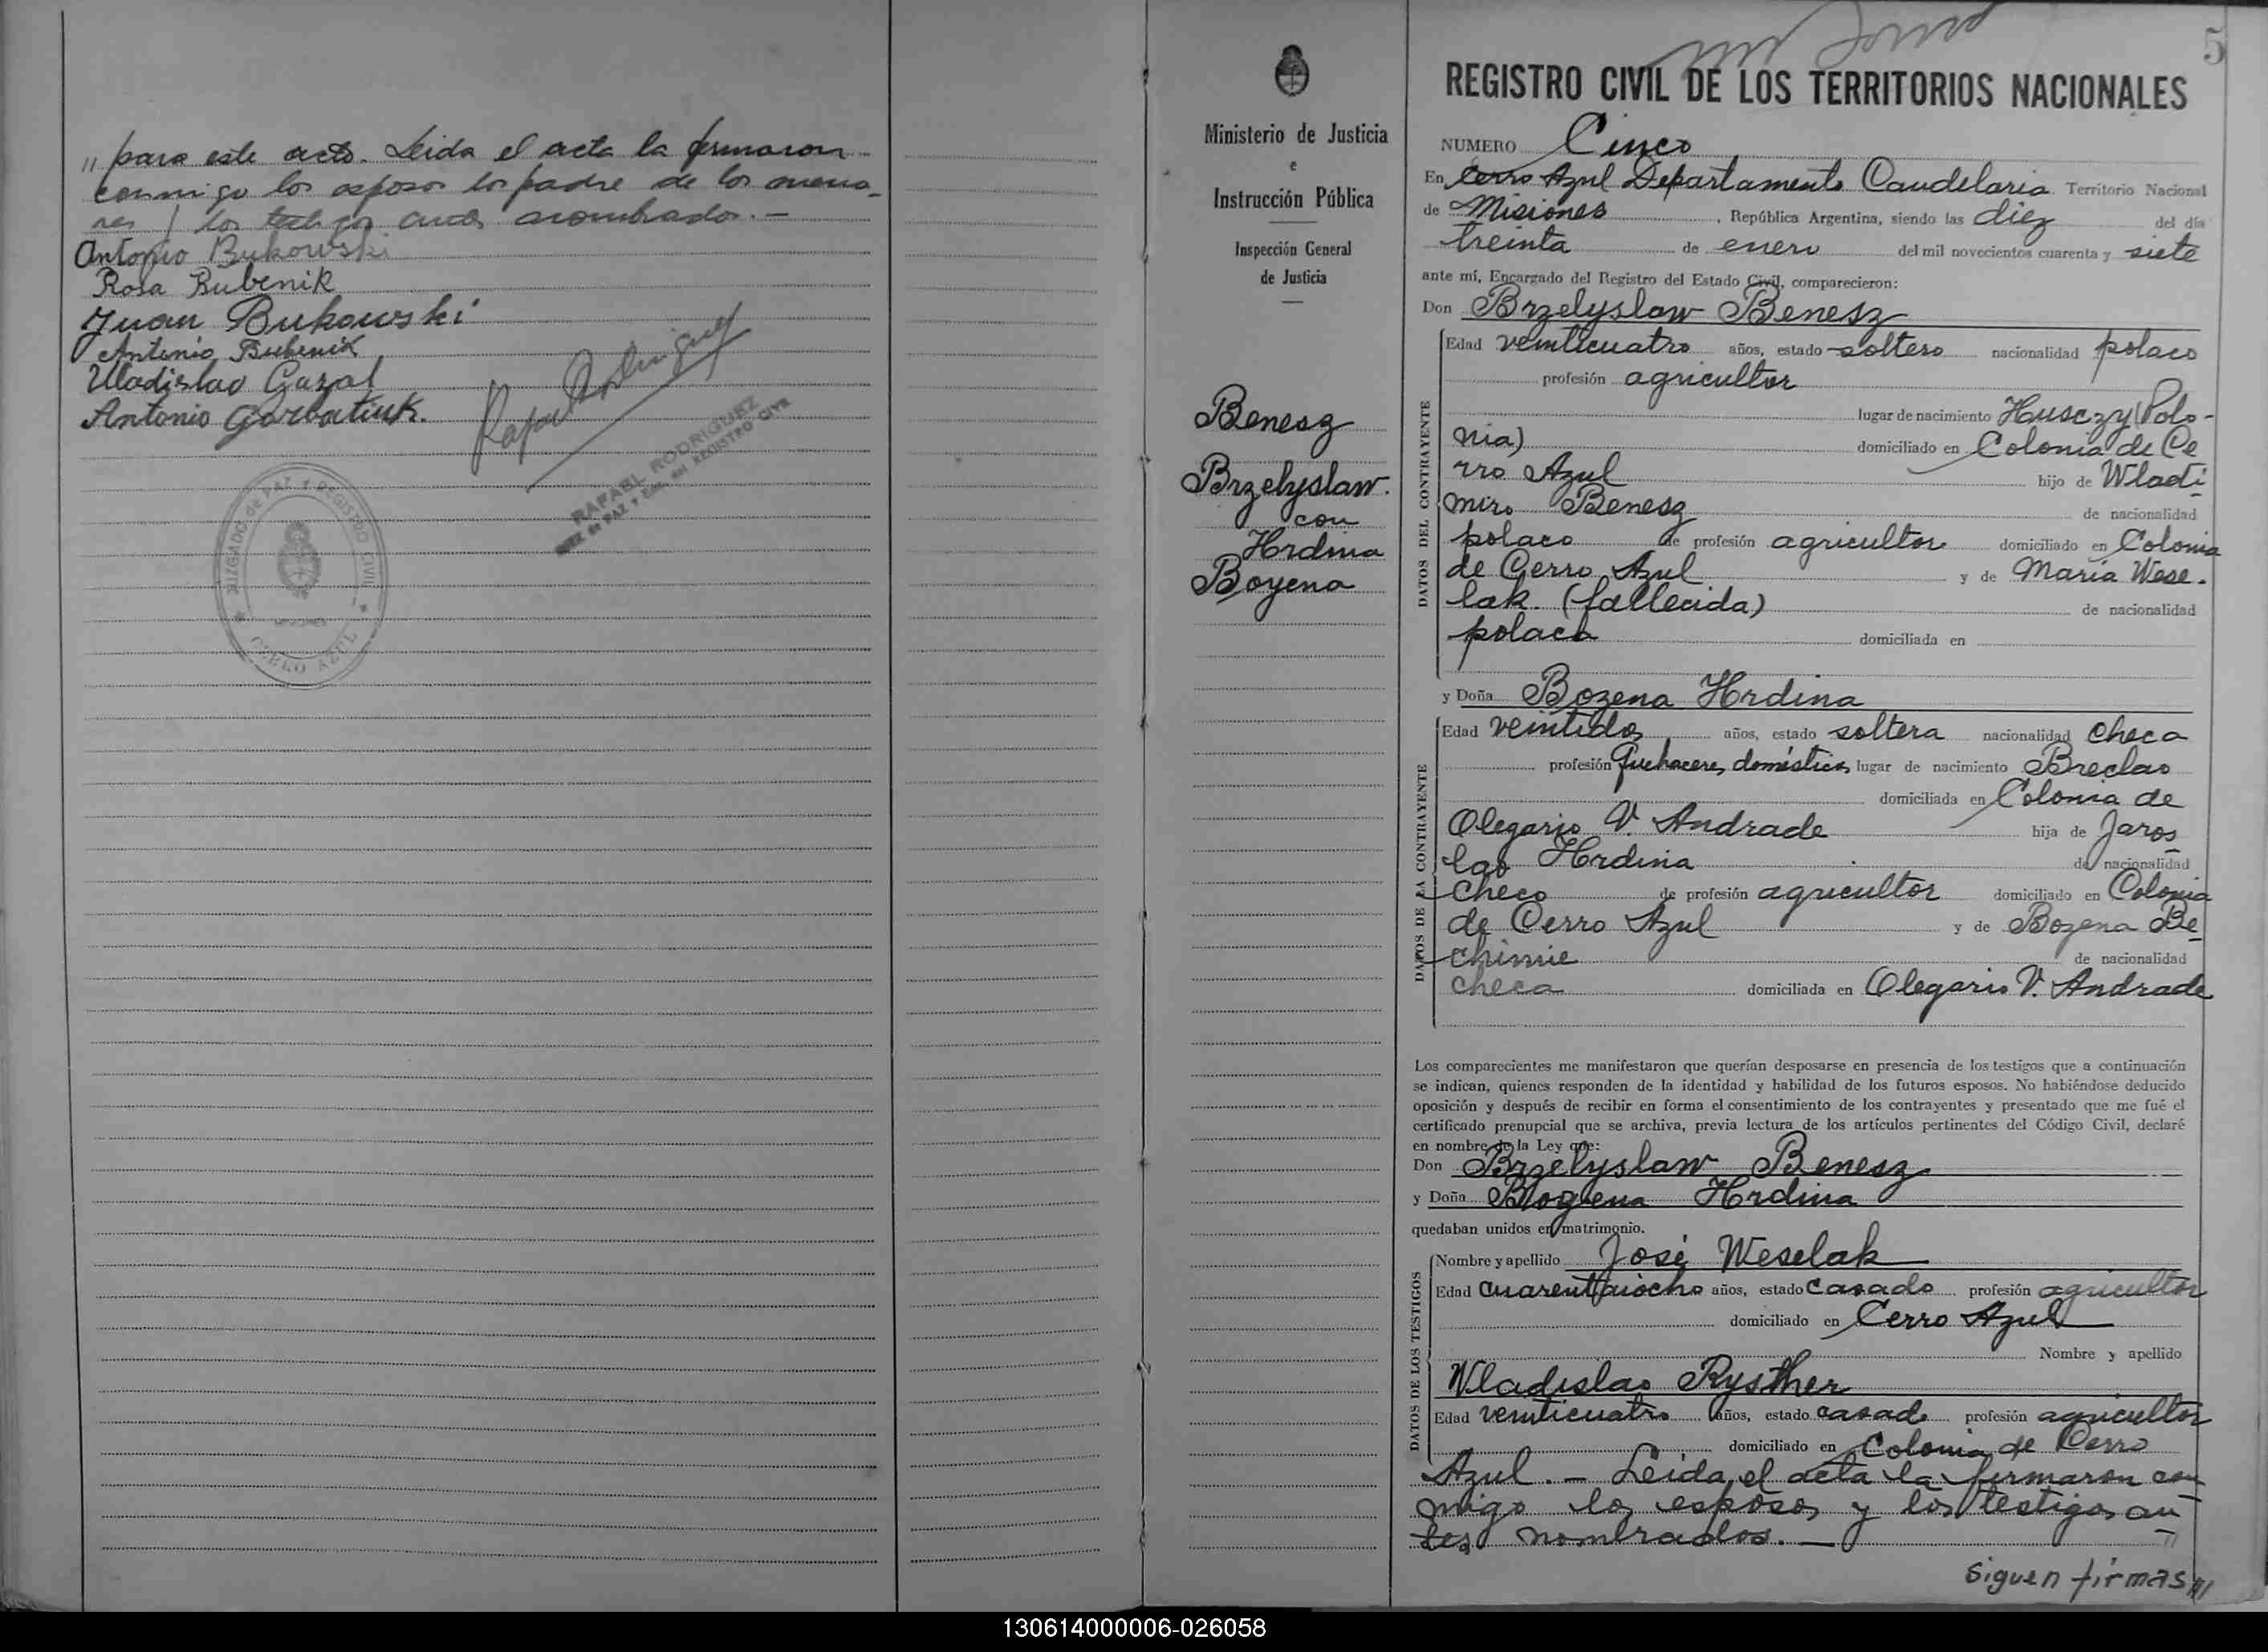 " para este acto. Leida el acta la firmaron
conmigo los esposos los padre de los meno-
res y los testigos antes nombrados. —
Antonio Bukowski
Rosa Bubenik
Juan Bukowski
Antonio Bubenik
Uladislao Gazal
Antonio Gorbatiuk.
RAFAEL RODRIGUEZ
JUEZ de PAZ y Enc. del REGISTRO CIVIL
JUZGADO de PAZ Y REGISTRO CIVIL
MISIONES
CERRO AZUL
5
Ministerio de Justicia
e
Instrucción Pública
Inspección General
de Justicia
Benesz
Brzelyslaw.
con
Hrdina
Boyena
REGISTRO CIVIL DE LOS TERRITORIOS NACIONALES
NUMERO Cinco
En Cerro Azul Departamento Candelaria Territorio Nacional
de Misiones, República Argentina, siendo las diez del día
treinta de enero del mil novecientos cuarenta y siete
ante mí, Encargado del Registro del Estado Civil, comparecieron:
Don Brzelyslaw Benesz
DATOS DEL CONTRAYENTE
Edad veinticuatro años, estado soltero nacionalidad polaco
profesión agricultor
lugar de nacimiento Husczy (Polo-
nia) domiciliado en Colonia de Ce
rro Azul hijo de Wladi
miro Benesz de nacionalidad
polaco de profesión agricultor domiciliado en Colonia
de Cerro Azul y de María Wese-
lak. (fallecida) de nacionalidad
polaca domiciliada en
y Doña Bozena Hrdina
DATOS DE LA CONTRAYENTE
Edad veintidos años, estado soltera nacionalidad checa
profesión Quehaceres domésticos lugar de nacimiento Breclao
domiciliada en Colonia de
Olegario V. Andrade hija de Jaros
lao Hrdina de nacionalidad
checo de profesión agricultor domiciliado en Colonia
de Cerro Azul y de Bozena Be
chinie de nacionalidad
checa domiciliada en Olegario V. Andrade
Los comparecientes me manifestaron que querían desposarse en presencia de los testigos que a continuación
se indican, quienes responden de la identidad y habilidad de los futuros esposos. No habiéndose deducido
oposición y después de recibir en forma el consentimiento de los contrayentes y presentado que me fué el
certificado prenupcial que se archiva, previa lectura de los artículos pertinentes del Código Civil, declaré
en nombre de la Ley que:
Don Brzelyslaw Benesz
y Doña Bogena Hrdina
quedaban unidos en matrimonio.
DATOS DE LOS TESTIGOS
Nombre y apellido José Weselak
Edad cuarentaiocho años, estado casado profesión agricultor
domiciliado en Cerro Azul
Nombre y apellido
Wladislao Rysther
Edad veinticuatro años, estado casado profesión agricultor
domiciliado en Colonia de Cerro
Azul. — Leida el acta la firmaron con
migo los esposos y los testigos an
tes nombrados. —
siguen firmas///
130614000006-026058